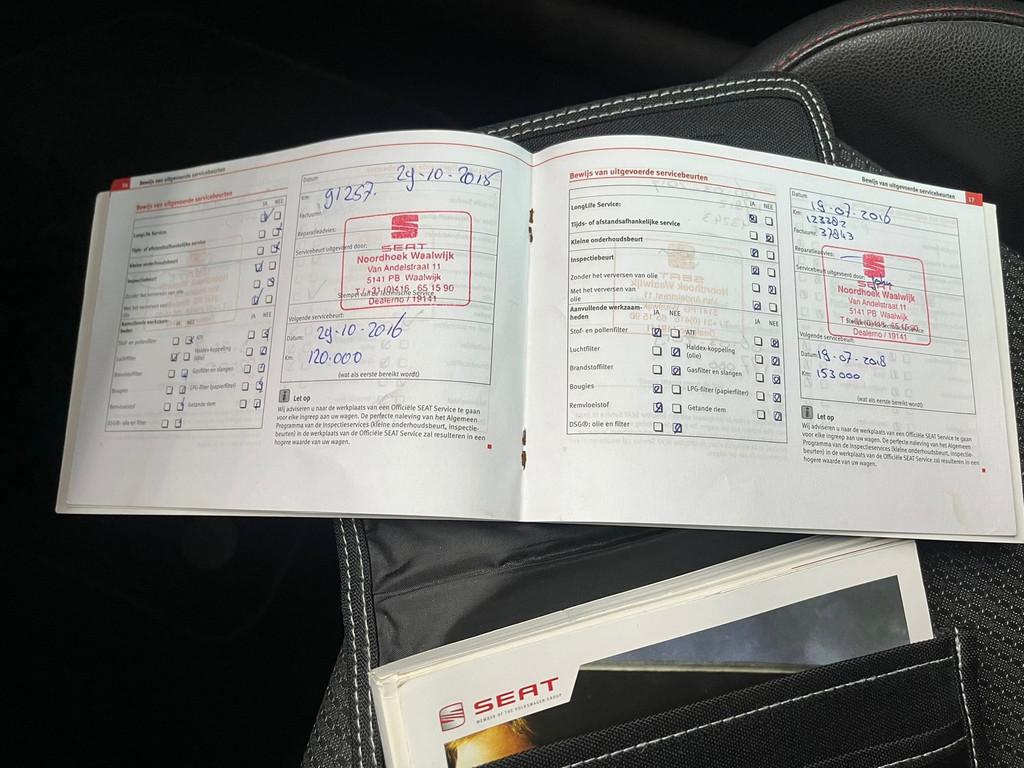 16 Bewijs van uitgevoerde servicebeurten
Bewijs van uitgevoerde servicebeurten
JA NEE
LongLife Service:
Tijds- of afstandsafhankelijke service
Kleine onderhoudsbeurt
Inspectiebeurt
Zonder het verversen van olie
Met het verversen van olie
Aanvullende werkzaam-
heden
JA NEE
JA NEE
Stof- en pollenfilter
ATF
Luchtfilter
Haldex-koppeling
(olie)
Brandstoffilter
Gasfilter en slangen
Bougies
LPG-filter (papierfilter)
Remvloeistof
Getande riem
DSG®: olie en filter
Datum
29-10-2015
Km:
91257.
Factuurnr.
Reparatieadvies:
Servicebeurt uitgevoerd door:
SEAT
Noordhoek Waalwijk
Van Andelstraat 11
5141 PB Waalwijk
T / +31 (0)416 - 65 15 90
Stempel van de Technische Service
Dealerno / 19141
Volgende servicebeurt:
Datum:
29-10-2016
Km:
120.000
(wat als eerste bereikt wordt)
Let op
Wij adviseren u naar de werkplaats van een Officiële SEAT Service te gaan
voor elke ingreep aan uw wagen. De perfecte naleving van het Algemeen
Programma van de Inspectieservices (kleine onderhoudsbeurt, inspectie-
beurten) in de werkplaats van de Officiële SEAT Service zal resulteren in een
hogere waarde van uw wagen.
Bewijs van uitgevoerde servicebeurten 17
Bewijs van uitgevoerde servicebeurten
JA NEE
LongLife Service:
Tijds- of afstandsafhankelijke service
Kleine onderhoudsbeurt
Inspectiebeurt
Zonder het verversen van olie
Met het verversen van
olie
Aanvullende werkzaam-
heden
JA NEE
JA NEE
Stof- en pollenfilter
ATF
Luchtfilter
Haldex-koppeling
(olie)
Brandstoffilter
Gasfilter en slangen
Bougies
LPG-filter (papierfilter)
Remvloeistof
Getande riem
DSG®: olie en filter
Datum
19-07-2016
Km:
123382
Factuurnr.
37843
Reparatieadvies:
Servicebeurt uitgevoerd door:
SEAT
Noordhoek Waalwijk
Van Andelstraat 11
5141 PB Waalwijk
T / +31 (0)416 - 65 15 90
Dealerno / 19141
Volgende servicebeurt:
Datum:
19-07-2018
Km:
153000
(wat als eerste bereikt wordt)
Let op
Wij adviseren u naar de werkplaats van een Officiële SEAT Service te gaan
voor elke ingreep aan uw wagen. De perfecte naleving van het Algemeen
Programma van de Inspectieservices (kleine onderhoudsbeurt, inspectie-
beurten) in de werkplaats van de Officiële SEAT Service zal resulteren in een
hogere waarde van uw wagen.
SEAT
MEMBER OF THE VOLKSWAGEN GROUP